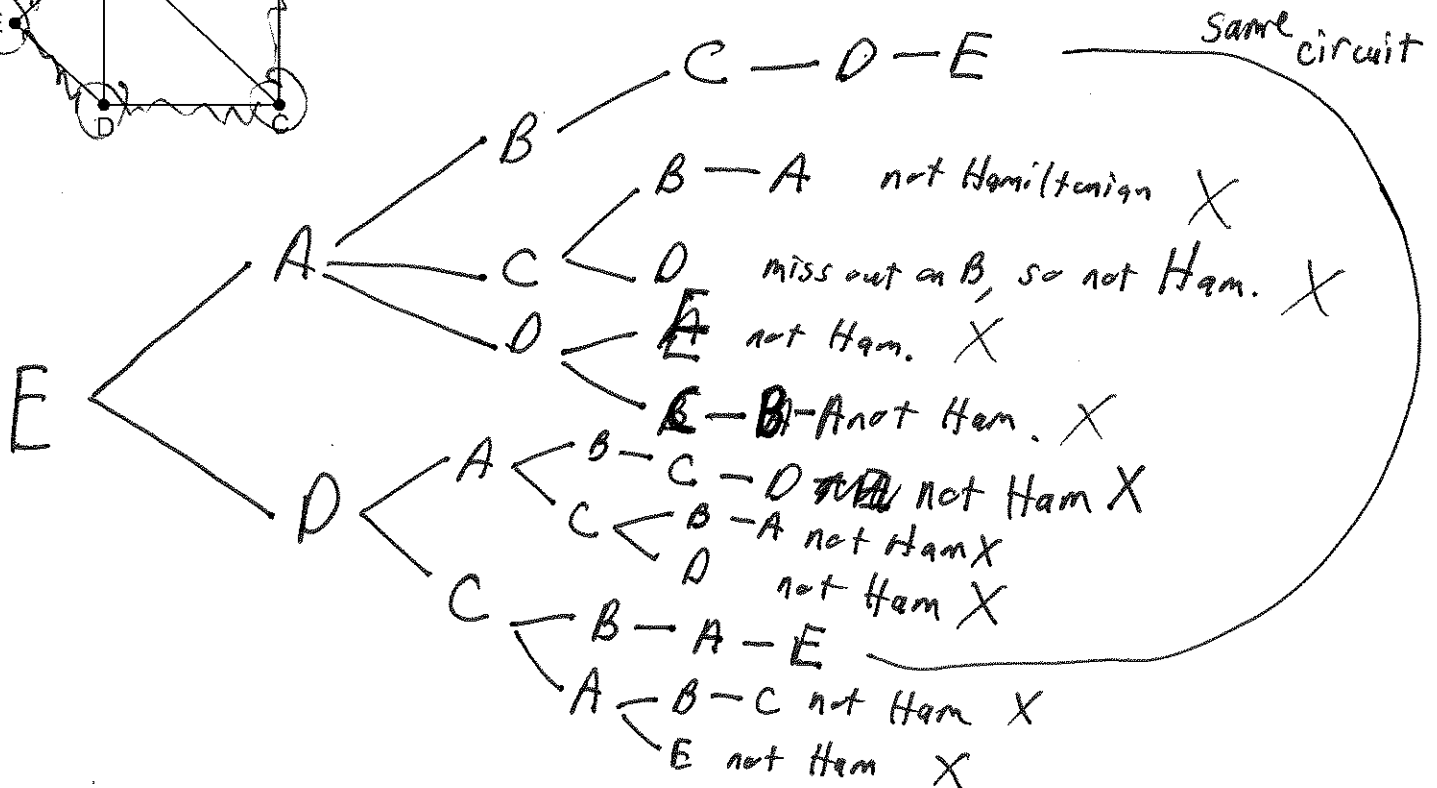 E
D
C
same
circuit
C — D — E
B
B — A not Hamiltonian X
A
C
D miss out on B, so not Ham. X
D
E not Ham. X
E
C — B — A not Ham. X
A
B — C — D not Ham X
D
C
B — A not Ham X
D not Ham X
C
B — A — E
A
B — C not Ham X
E not Ham X